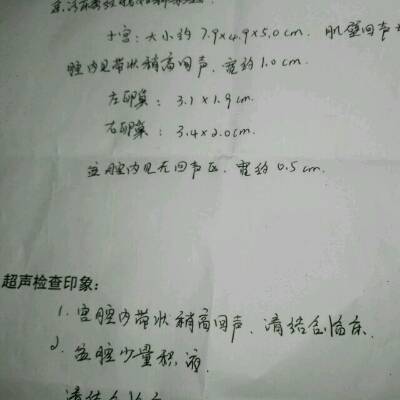 子宫:大小约7.9×4.9×5.0cm. 肌壁回声
腔内见带状稍高回声,宽约1.0cm.
左卵巢: 3.1×1.9cm.
右卵巢: 3.4×2.0cm.
盆腔内见无回声区,宽约0.5cm.
超声检查印象:
1. 宫腔内带状稍高回声,请结合临床.
2. 盆腔少量积液.
请结合